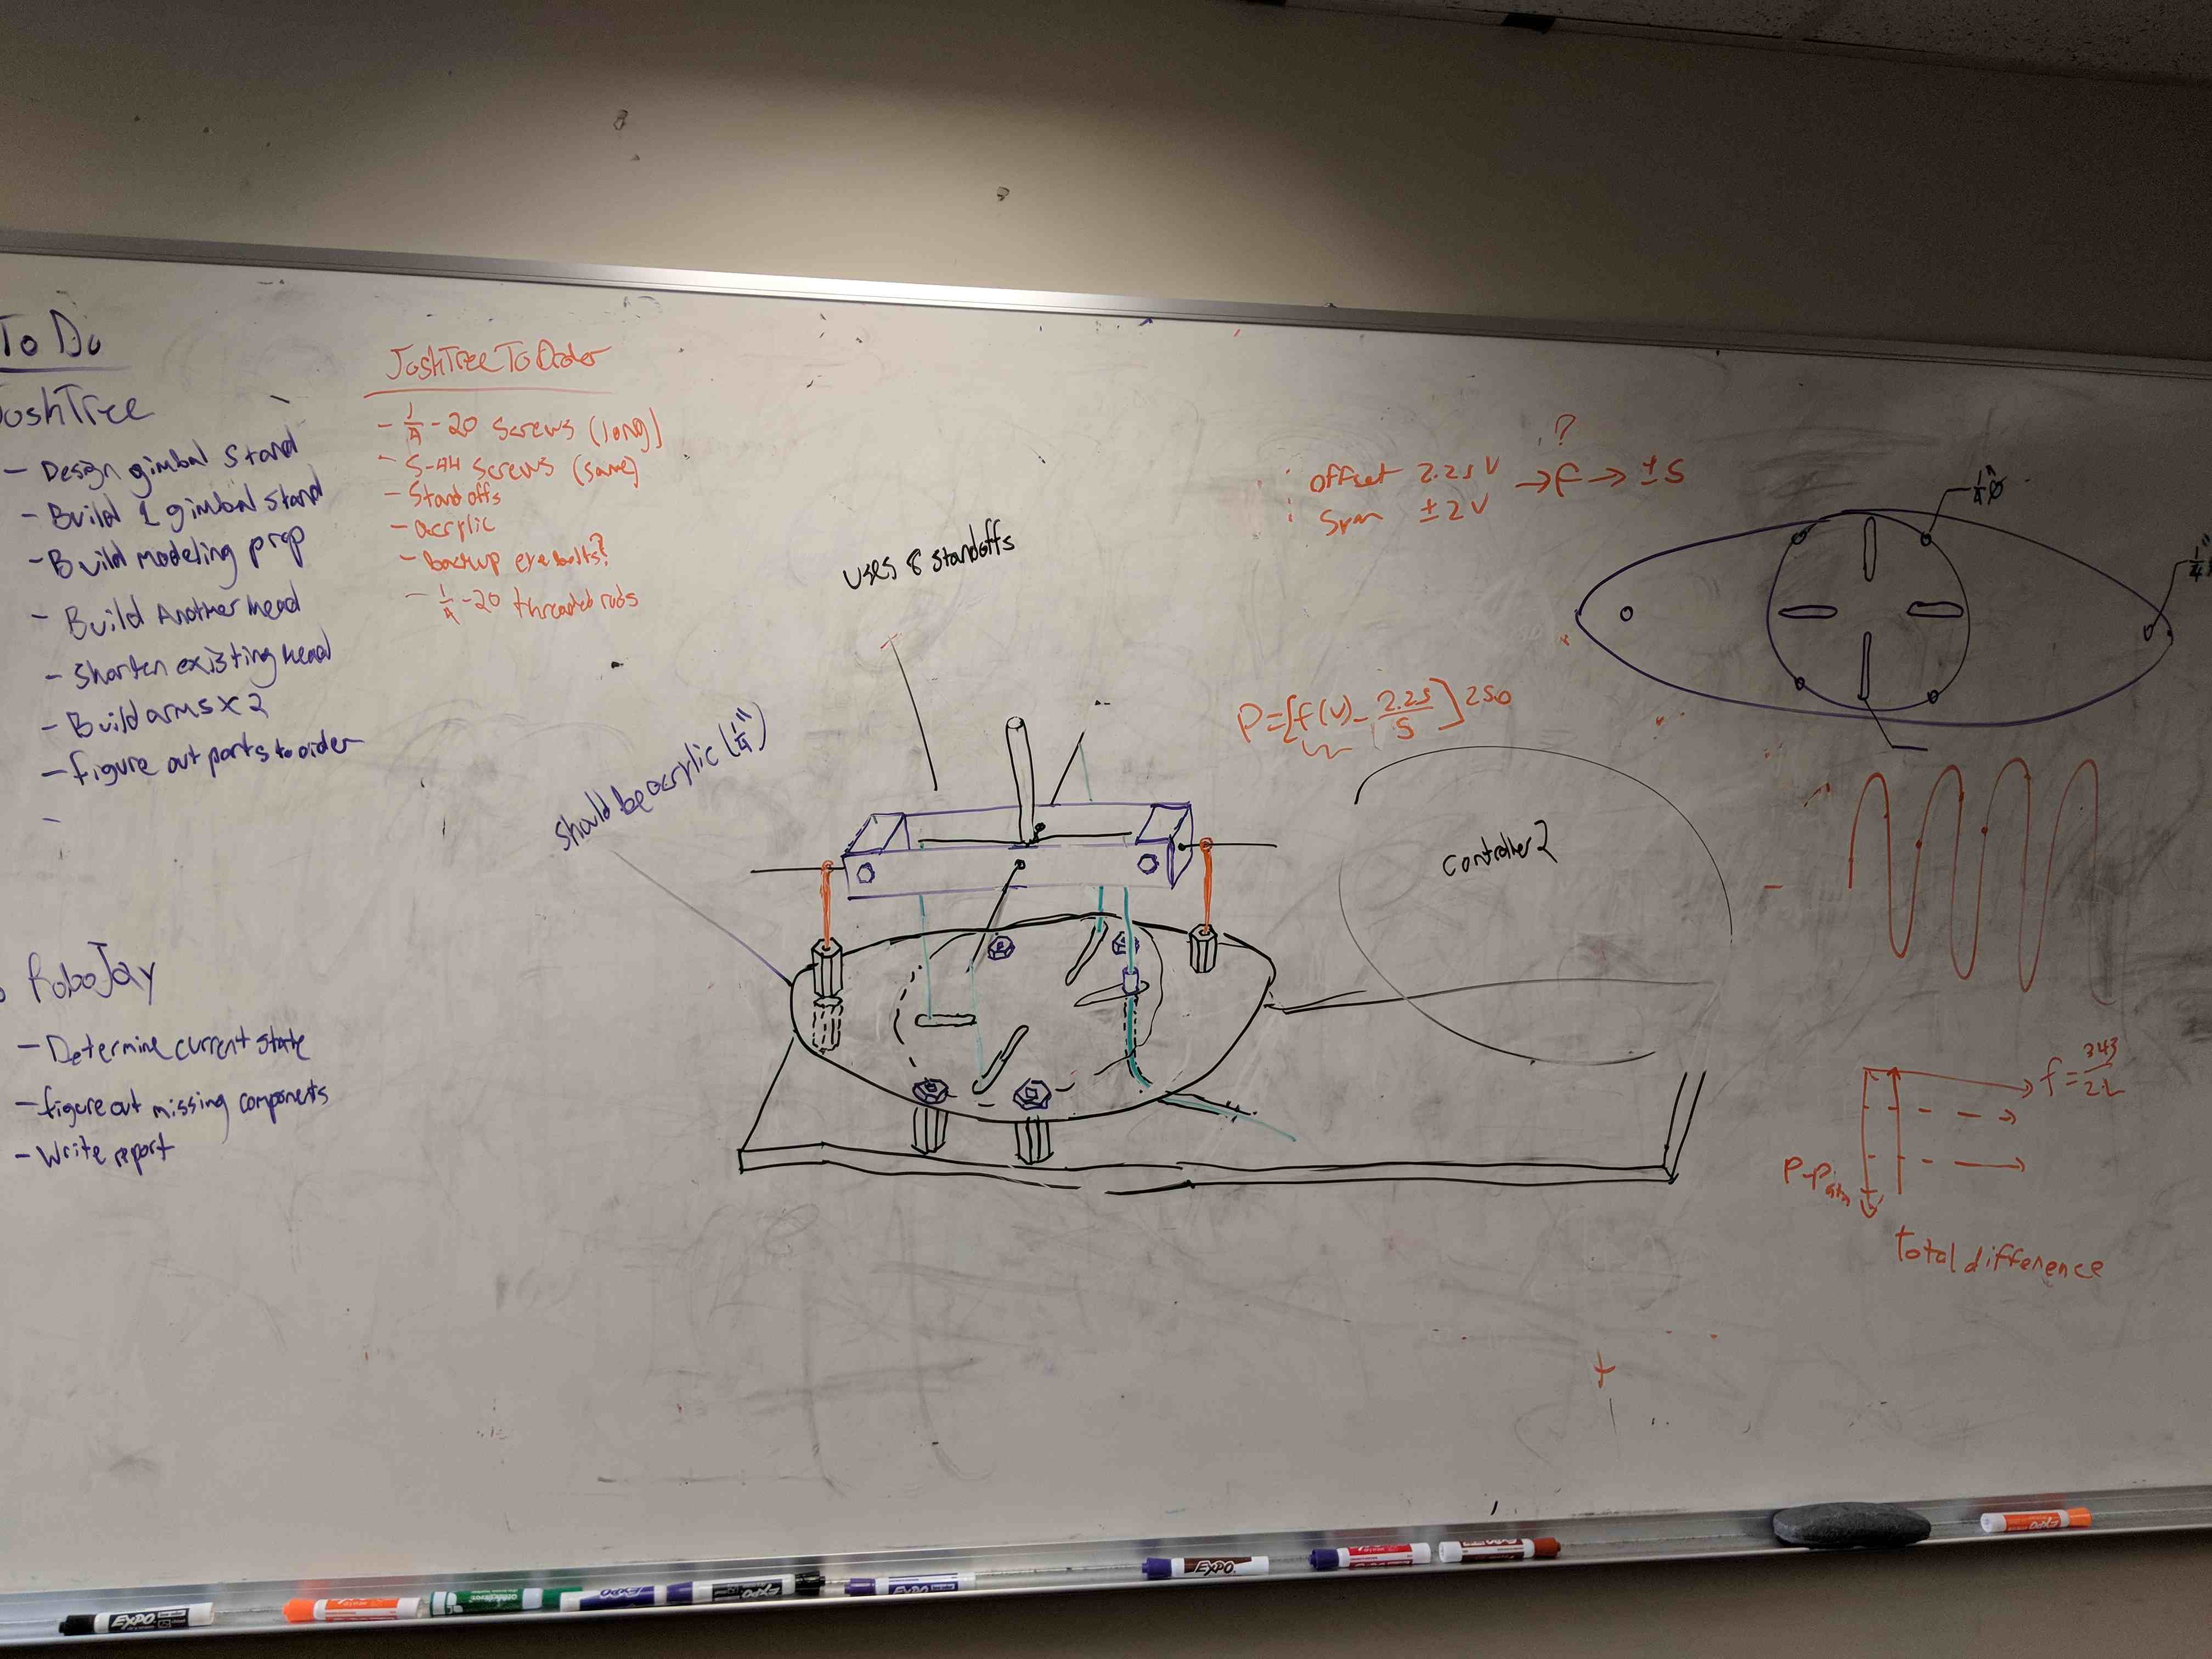 To Do
JoshTree
- Design gimbal stand
- Build 1 gimbal stand
- Build modeling prop
- Build Another head
- Shorten existing head
- Build arms x 2
- figure out parts to order
-
RoboJay
- Determine current state
- figure out missing components
- Write report
JoshTree To Order
- 1/4 - 20 screws (long)
- 5-44 screws (same)
- Standoffs
- acrylic
- backup eyebolts?
- 1/4 - 20 threaded rods
uses 8 standoffs
should be acrylic (1/4")
?
offset 2.25V → f → ± 5
Span ± 2V
P = [f(v) - 2.25/5] 250
1/4" ø
1/4"
Controller 2
f = 343/2L
P-Patm
total difference
EXPO
EXPO
EXPO
EXPO
EXPO
EXPO